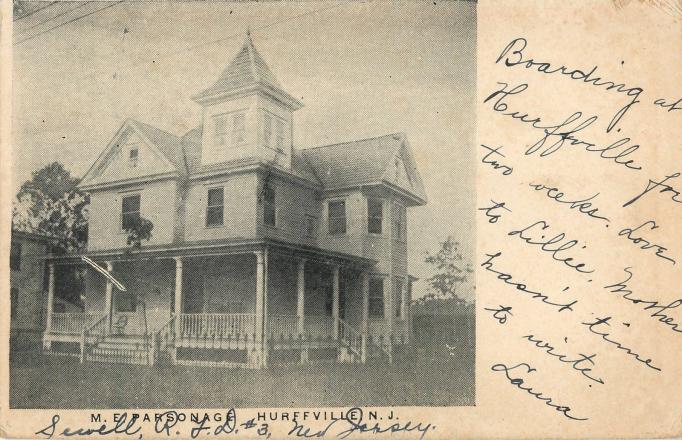 Boarding at
Hurffville for
two weeks. Love
to Lillie. Mother
hasn't time
to write.
Laura
M. E. PARSONAGE HURFFVILLE, N. J.
Sewell, R. F. D. #3, New Jersey.